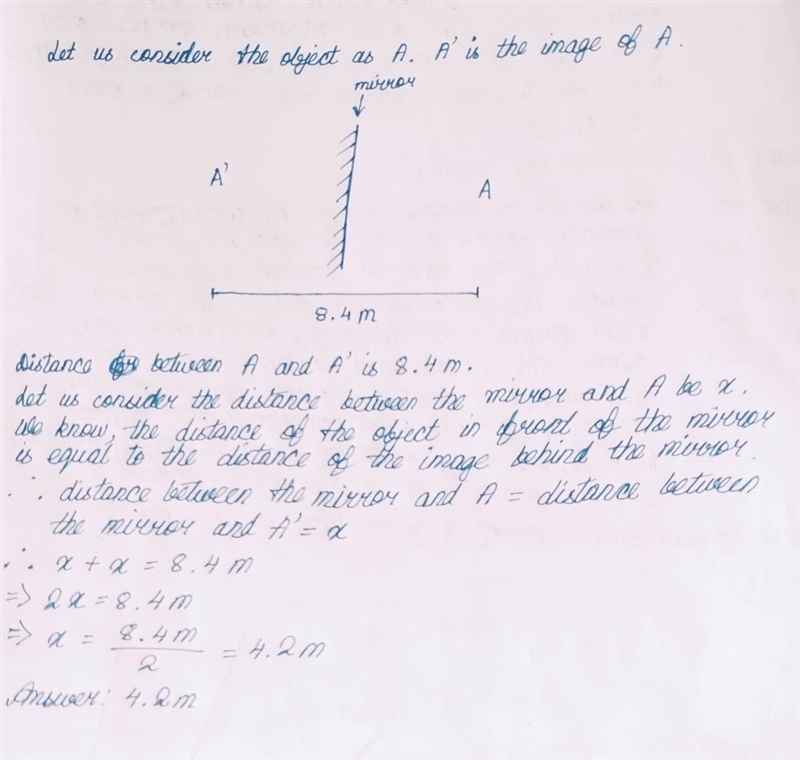 Let us consider the object as A. A' is the image of A.
mirror
A'
A
8.4 m
Distance between A and A' is 8.4 m.
Let us consider the distance between the mirror and A be x.
We know, the distance of the object in frond of the mirror
is equal to the distance of the image behind the mirror.
∴ distance between the mirror and A = distance between
the mirror and A' = x
∴ x + x = 8.4 m
=> 2x = 8.4 m
=> x = 8.4 m / 2 = 4.2 m
Answer: 4.2 m